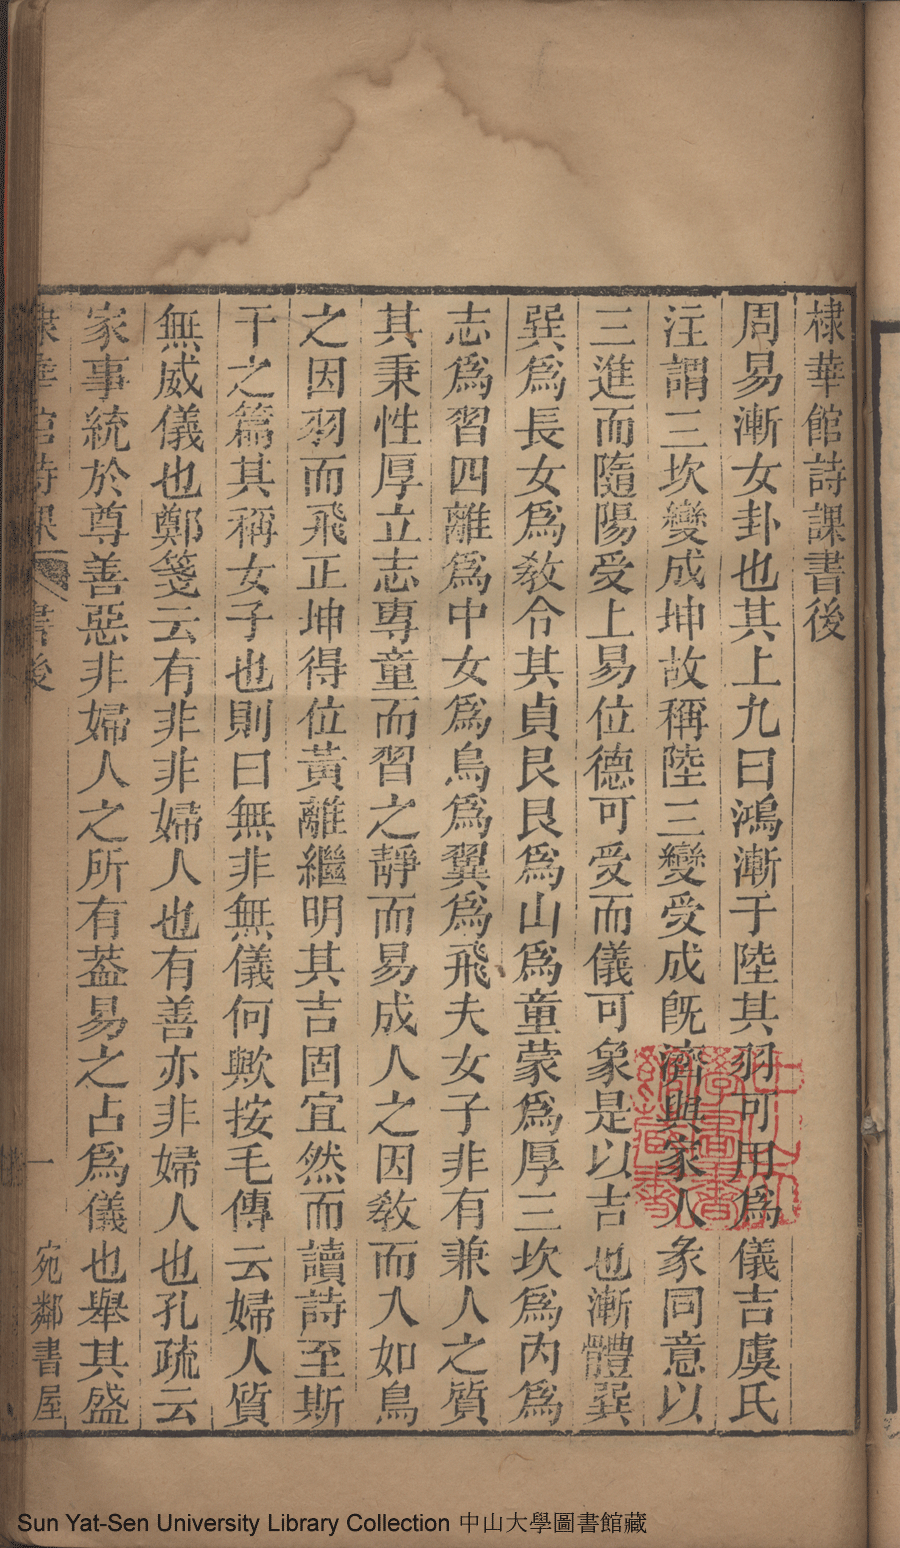 棣華館詩課書後
周易漸女卦也其上九曰鴻漸于陸其羽可用為儀吉虞氏
注謂三坎變成坤故稱陸三變受成旣濟與家人彖同意以
三進而隨陽受上易位德可受而儀可象是以吉也漸體巽
巽為長女為教令其貞艮艮為山為童蒙為厚三坎為內為
志為習四離為中女為鳥為翼為飛夫女子非有兼人之質
其秉性厚立志專童而習之靜而易成人之因教而入如鳥
之因羽而飛正坤得位黃離繼明其吉固宜然而讀詩至斯
干之篇其稱女子也則曰無非無儀何歟按毛傳云婦人質
無威儀也鄭箋云有非非婦人也有善亦非婦人也孔疏云
家事統於尊善惡非婦人之所有葢易之占為儀也舉其盛
棣華館詩課 書後 一 宛鄰書屋
Sun Yat-Sen University Library Collection 中山大學圖書館藏